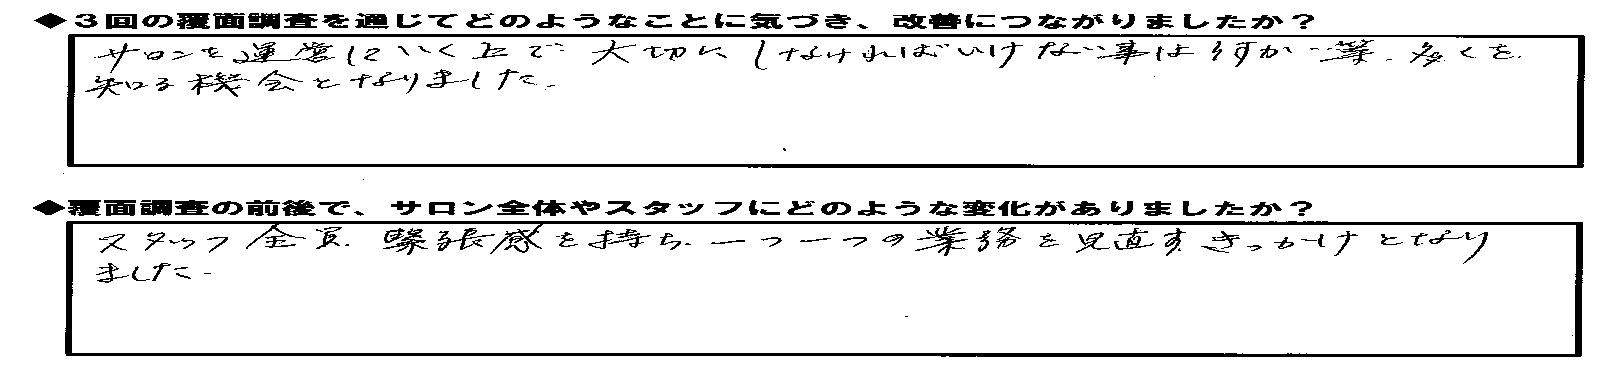 ◆３回の覆面調査を通じてどのようなことに気づき、改善につながりましたか？
サロンを運営していく上で大切にしなければいけない事は 業、多くを
知る機会となりました。
◆覆面調査の前後で、サロン全体やスタッフにどのような変化がありましたか？
スタッフ全員、緊張感を持ち、一つ一つの業務を見直すきっかけとなり
ました。